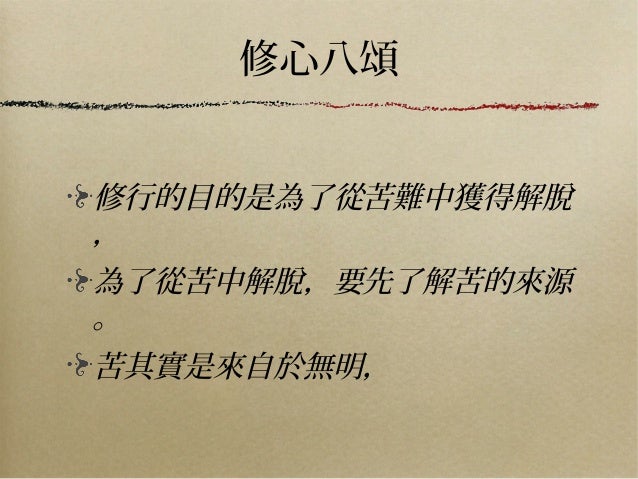 修心八頌
修行的目的是為了從苦難中獲得解脫
，
為了從苦中解脫，要先了解苦的來源
。
苦其實是來自於無明，